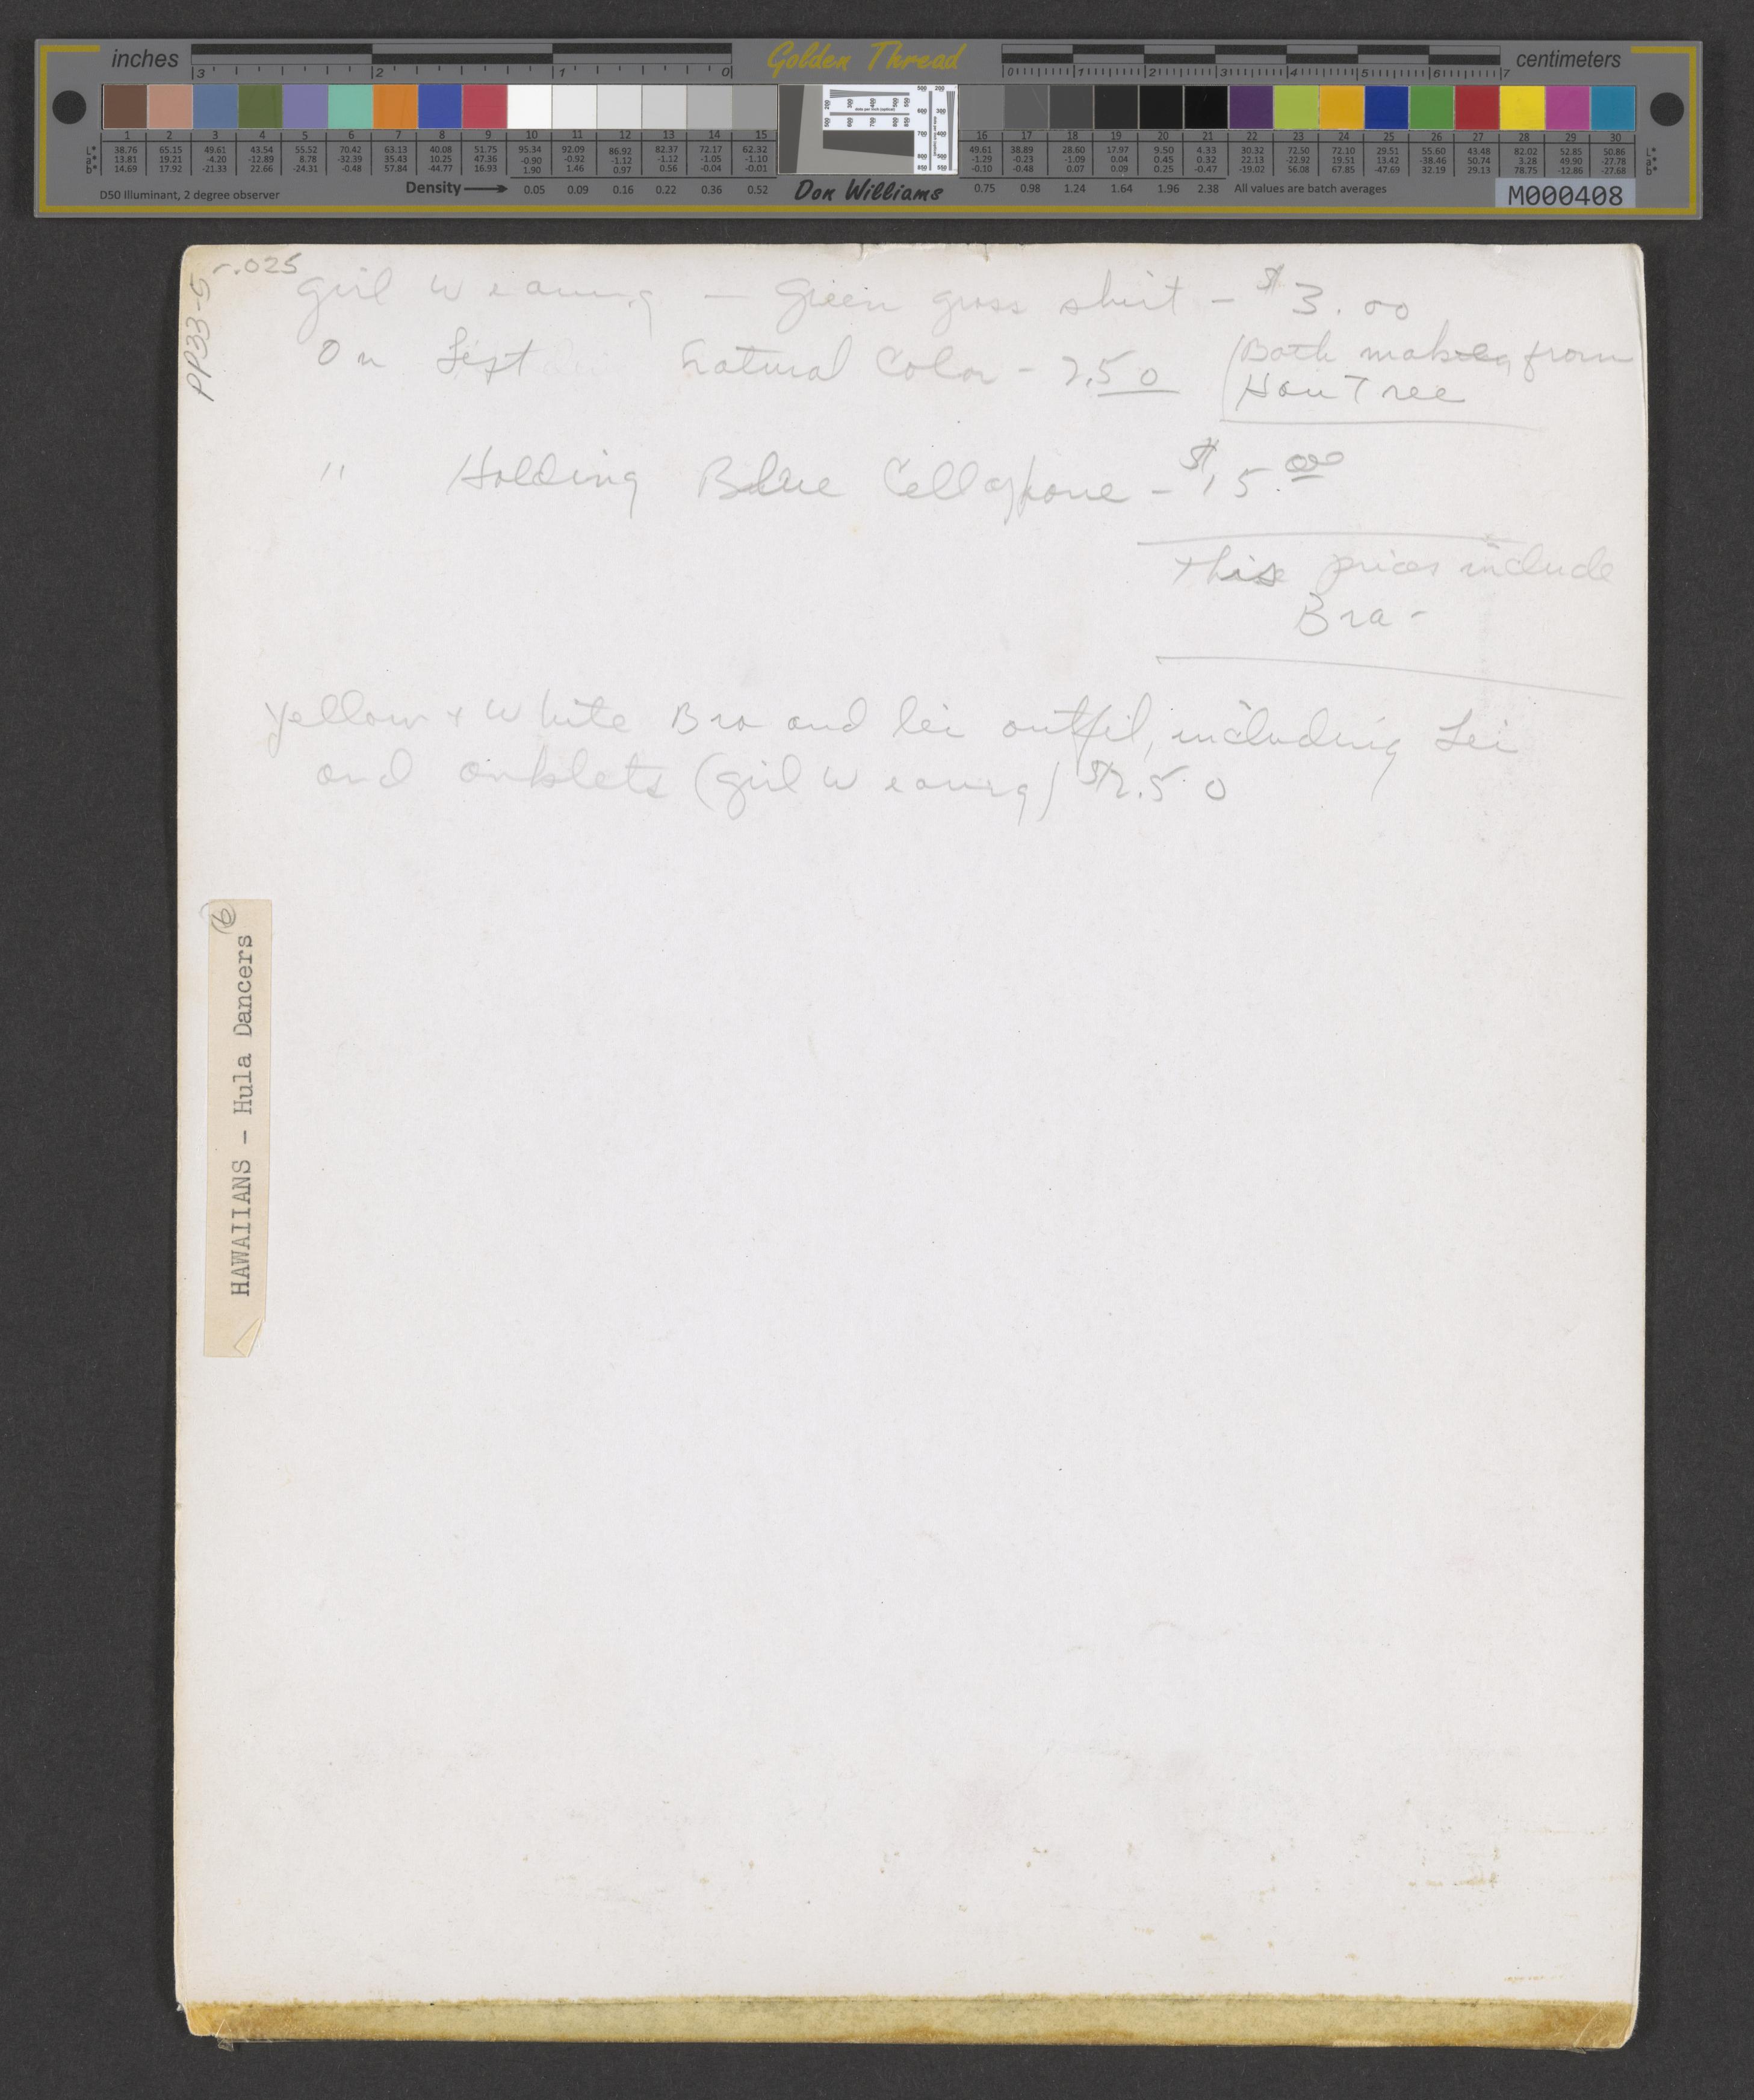 inches
3 2 1 0
Golden Thread
0 1 2 3 4 5 6 7
centimeters
1 2 3 4 5 6 7 8 9 10 11 12 13 14 15
38.76 65.15 49.61 43.54 55.52 70.42 63.13 40.08 51.75 95.34 92.09 86.92 82.37 72.17 62.32
13.81 19.21 -4.20 -12.89 8.78 -32.39 35.43 10.25 47.36 -0.90 -0.92 -1.12 -1.12 -1.05 -1.10
14.69 17.92 -21.33 22.66 -24.31 -0.48 57.84 -44.77 16.93 1.90 1.46 0.97 0.56 -0.04 -0.01
16 17 18 19 20 21 22 23 24 25 26 27 28 29 30
49.61 38.89 28.60 17.97 9.50 4.33 30.32 72.50 72.10 29.51 55.60 43.48 82.02 52.85 50.86 L*
-1.29 -0.23 -1.09 0.04 0.45 0.32 22.13 -22.92 19.51 13.42 -38.46 50.74 3.28 49.90 -27.78 a*
-0.10 -0.48 0.07 0.09 0.25 -0.47 -19.02 56.08 67.85 -47.69 32.19 29.13 78.75 -12.86 -27.68 b*
D50 Illuminant, 2 degree observer
Density 0.05 0.09 0.16 0.22 0.36 0.52
Don Williams
0.75 0.98 1.24 1.64 1.96 2.38 All values are batch averages
M000408
PP33-5-r.025
girl wearing — Green grass skirt - $3.00
On Left natural Color - 2.50 (Both from
Hau Tree
" Holding Blue Cellophone - $15.00
This prices include
Bra -
yellow + White Bra and lei outfit, including Lei
and anklets (girl wearing) $2.50
HAWAIIANS - Hula Dancers 6